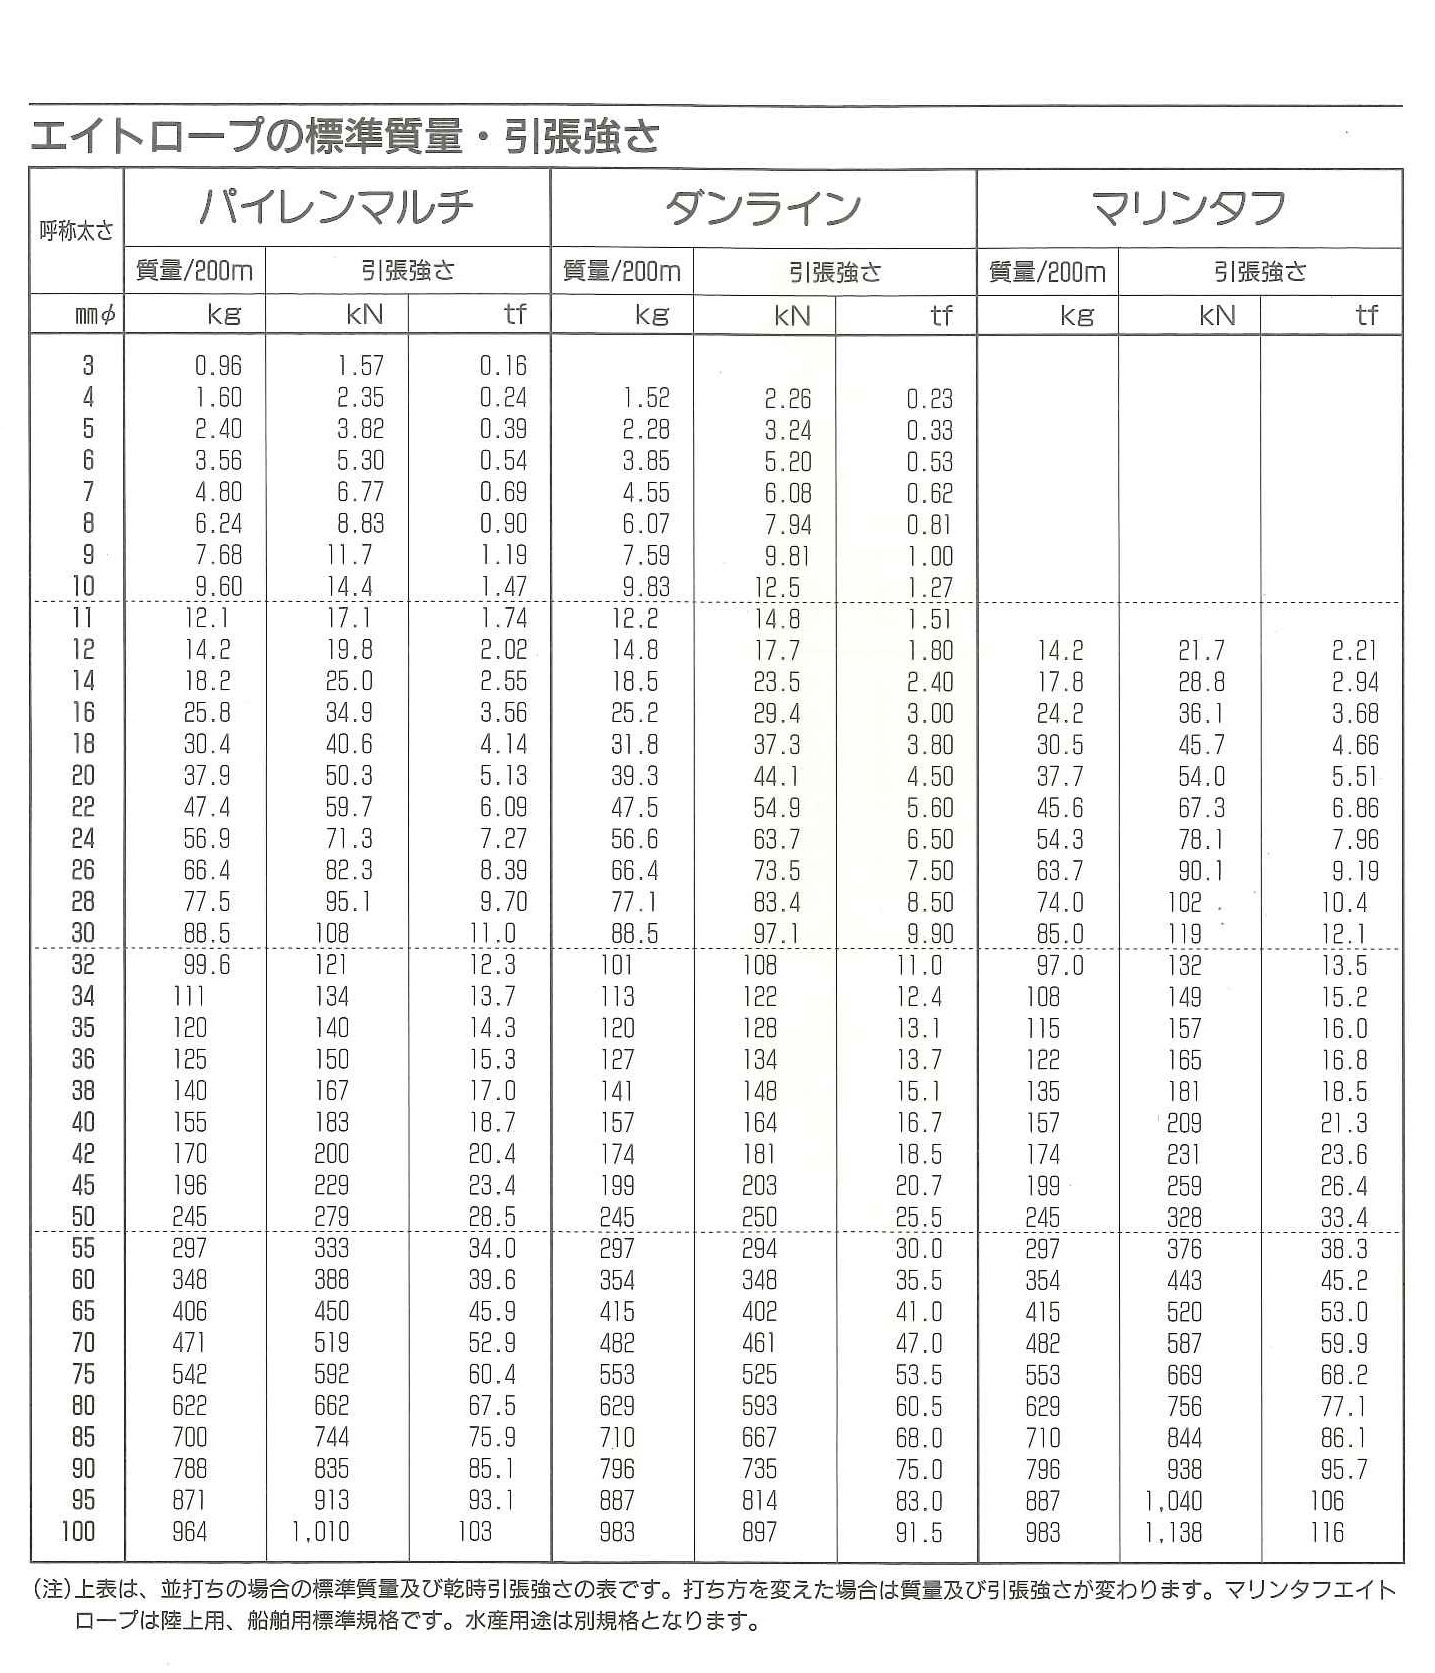 エイトロープの標準質量・引張強さ
呼称太さ パイレンマルチ ダンライン マリンタフ
質量/200m 引張強さ 質量/200m 引張強さ 質量/200m 引張強さ
mmφ kg kN tf kg kN tf kg kN tf
3 0.96 1.57 0.16
4 1.60 2.35 0.24 1.52 2.26 0.23
5 2.40 3.82 0.39 2.28 3.24 0.33
6 3.56 5.30 0.54 3.85 5.20 0.53
7 4.80 6.77 0.69 4.55 6.08 0.62
8 6.24 8.83 0.90 6.07 7.94 0.81
9 7.68 11.7 1.19 7.59 9.81 1.00
10 9.60 14.4 1.47 9.83 12.5 1.27
11 12.1 17.1 1.74 12.2 14.8 1.51
12 14.2 19.8 2.02 14.8 17.7 1.80 14.2 21.7 2.21
14 18.2 25.0 2.55 18.5 23.5 2.40 17.8 28.8 2.94
16 25.8 34.9 3.56 25.2 29.4 3.00 24.2 36.1 3.68
18 30.4 40.6 4.14 31.8 37.3 3.80 30.5 45.7 4.66
20 37.9 50.3 5.13 39.3 44.1 4.50 37.7 54.0 5.51
22 47.4 59.7 6.09 47.5 54.9 5.60 45.6 67.3 6.86
24 56.9 71.3 7.27 56.6 63.7 6.50 54.3 78.1 7.96
26 66.4 82.3 8.39 66.4 73.5 7.50 63.7 90.1 9.19
28 77.5 95.1 9.70 77.1 83.4 8.50 74.0 102 10.4
30 88.5 108 11.0 88.5 97.1 9.90 85.0 119 12.1
32 99.6 121 12.3 101 108 11.0 97.0 132 13.5
34 111 134 13.7 113 122 12.4 108 149 15.2
35 120 140 14.3 120 128 13.1 115 157 16.0
36 125 150 15.3 127 134 13.7 122 165 16.8
38 140 167 17.0 141 148 15.1 135 181 18.5
40 155 183 18.7 157 164 16.7 157 209 21.3
42 170 200 20.4 174 181 18.5 174 231 23.6
45 196 229 23.4 199 203 20.7 199 259 26.4
50 245 279 28.5 245 250 25.5 245 328 33.4
55 297 333 34.0 297 294 30.0 297 376 38.3
60 348 388 39.6 354 348 35.5 354 443 45.2
65 406 450 45.9 415 402 41.0 415 520 53.0
70 471 519 52.9 482 461 47.0 482 587 59.9
75 542 592 60.4 553 525 53.5 553 669 68.2
80 622 662 67.5 629 593 60.5 629 756 77.1
85 700 744 75.9 710 667 68.0 710 844 86.1
90 788 835 85.1 796 735 75.0 796 938 95.7
95 871 913 93.1 887 814 83.0 887 1,040 106
100 964 1,010 103 983 897 91.5 983 1,138 116
(注)上表は、並打ちの場合の標準質量及び乾時引張強さの表です。打ち方を変えた場合は質量及び引張強さが変わります。マリンタフエイト
ロープは陸上用、船舶用標準規格です。水産用途は別規格となります。